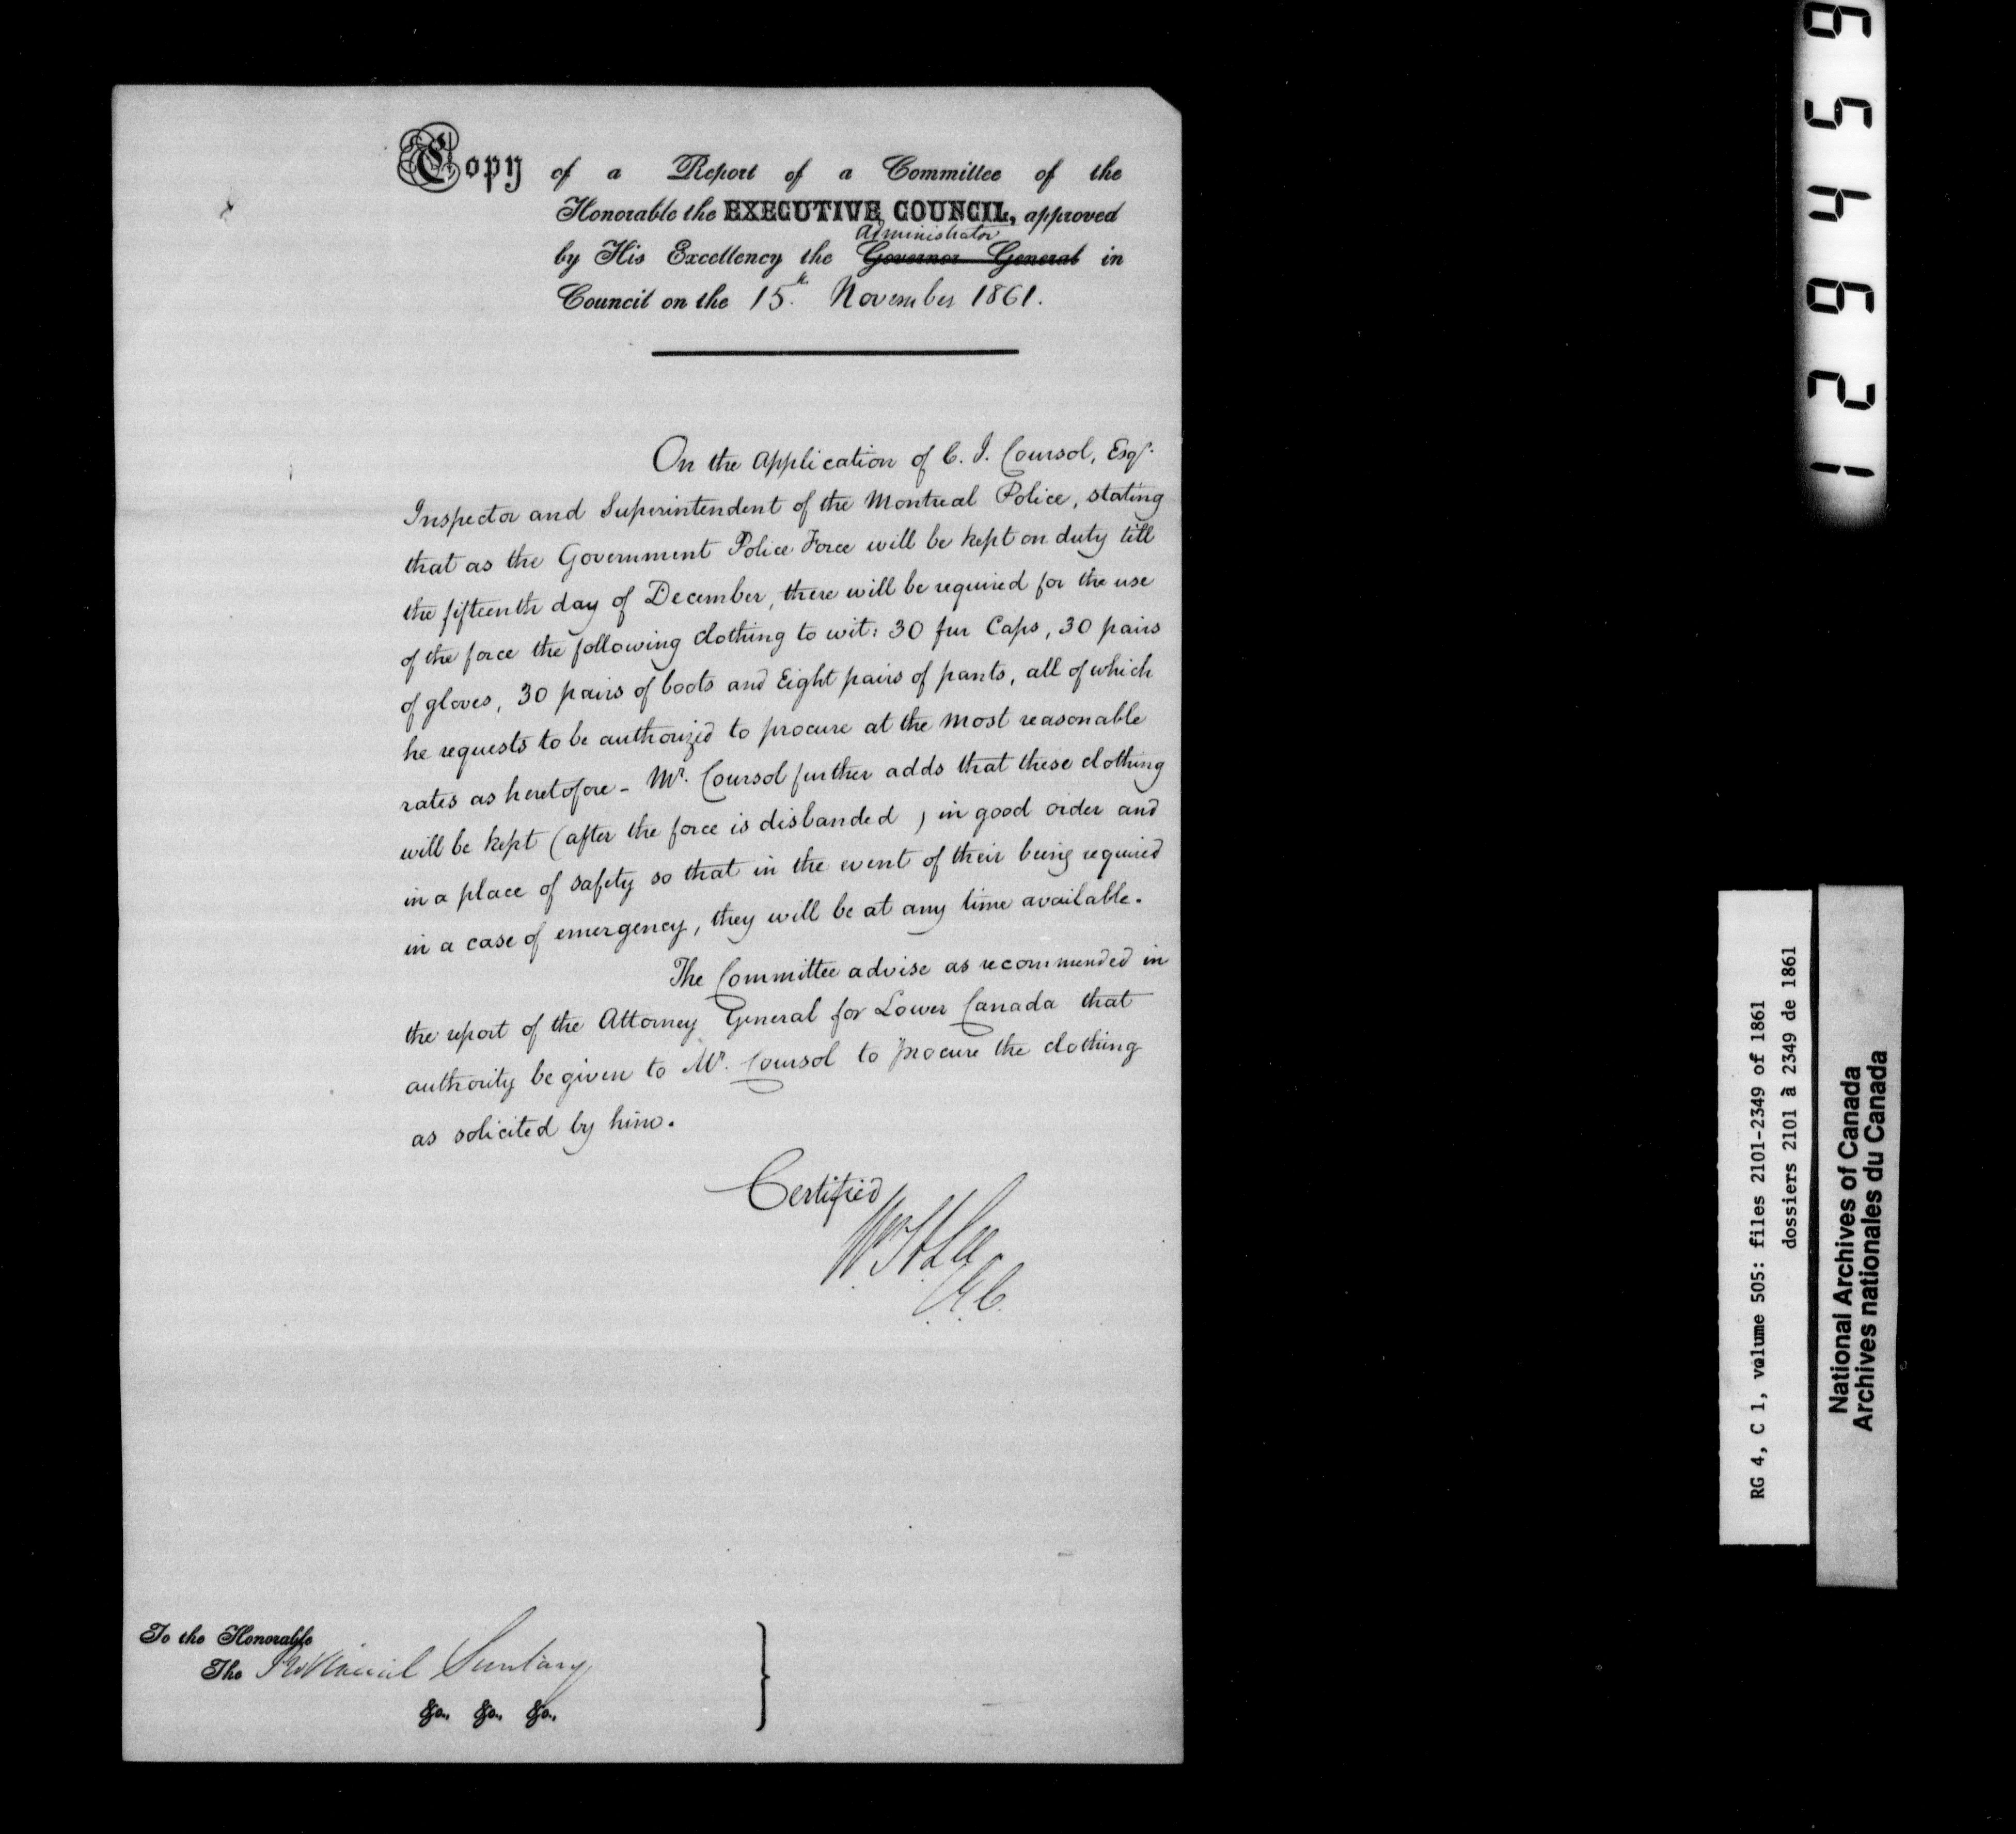 Copy of a Report of a Committee of the
Honorable the EXECUTIVE COUNCIL, approved
Administrator
by His Excellency the Governor General in
Council on the 15th November 1861.
On the Application of C. J. Coursol, Esqr.
Inspector and Superintendent of the Montreal Police, stating
that as the Government Police Force will be kept on duty till
the fifteenth day of December, there will be required for the use
of the force the following clothing to wit: 30 fur Caps, 30 pairs
of gloves, 30 pairs of boots and Eight pairs of pants, all of which
he requests to be authorized to procure at the most reasonable
rates as heretofore - Mr. Coursol further adds that these clothing
will be kept (after the force is disbanded) in good order and
in a place of safety so that in the event of their being required
in a case of emergency, they will be at any time available.
The Committee advise as recommended in
the report of the Attorney General for Lower Canada that
authority be given to Mr. Coursol to procure the clothing
as solicited by him.
Certified
Wm H Lee
C.E.C.
To the Honorable
The Provincial Secretary
&c., &c., &c.,
129456
RG 4, C 1, volume 505: files 2101-2349 of 1861
dossiers 2101 à 2349 de 1861
National Archives of Canada
Archives nationales du Canada